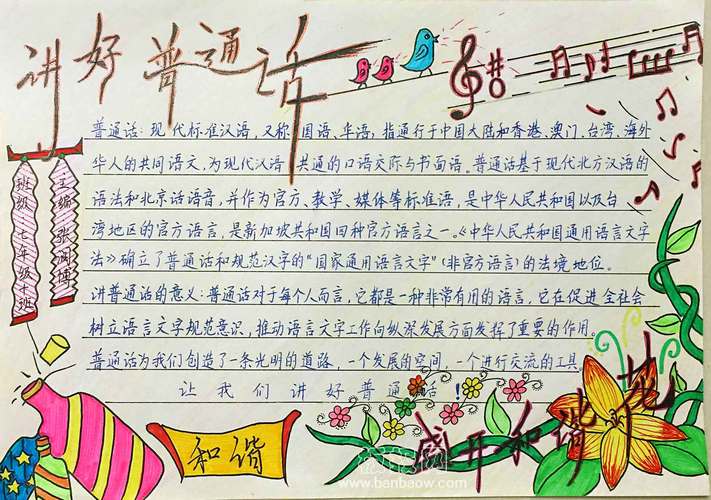 讲好普通话
普通话:现代标准汉语,又称国语、华语,指通行于中国大陆和香港、澳门、台湾、海外
华人的共同语文,为现代汉语共通的口语交际与书面语。普通话基于现代北方汉语的
语法和北京话语音,并作为官方、教学、媒体等标准语,是中华人民共和国以及台
湾地区的官方语言,是新加坡共和国四种官方语言之一。《中华人民共和国通用语言文字
法》确立了普通话和规范汉字的“国家通用语言文字”(非官方语言)的法境地位。
讲普通话的意义:普通话对于每个人而言,它都是一种非常有用的语言,它在促进全社会
树立语言文字规范意识,推动语言文字工作向纵深发展方面发挥了重要的作用。
普通话为我们创造了一条光明的道路,一个发展的空间,一个进行交流的工具。
让我们讲好普通话!
班级七年级十班
主编 张润博
和谐
盛开和谐花
www.banbaow.com